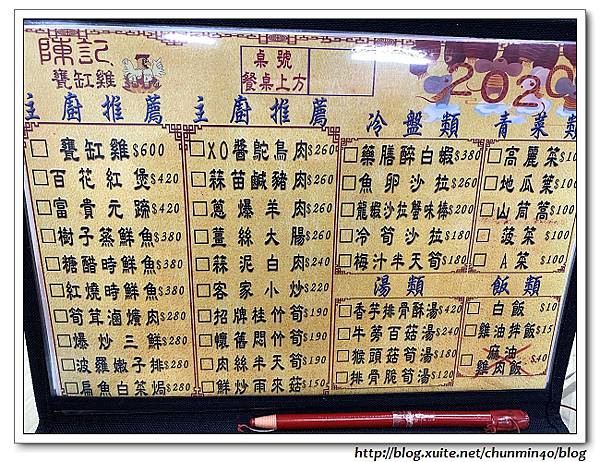 陳記
甕缸雞
桌號
餐桌上方
2020
主廚推薦
甕缸雞$600
百花紅煲$420
富貴元蹄$420
樹子蒸鮮魚$380
糖醋時鮮魚$380
紅燒時鮮魚$380
筍茸滷爌肉$280
爆炒三鮮$280
波羅嫩子排$280
扁魚白菜焗$280
主廚推薦
XO醬鴕鳥肉$260
蒜苗鹹豬肉$260
蔥爆羊肉$260
薑絲大腸$260
蒜泥白肉$240
客家小炒$220
招牌桂竹筍$190
懷舊悶竹筍$190
肉絲半天筍$190
鮮炒雨來菇$150
冷盤類
藥膳醉白蝦$380
魚卵沙拉$260
龍蝦沙拉蟹味棒$200
冷筍沙拉$180
梅汁半天筍$180
湯類
香芋排骨酥湯$420
牛蒡百菇湯$240
猴頭菇筍湯$180
排骨脆筍湯$120
青菜類
高麗菜$10
地瓜葉$10
山茼蒿$100
菠菜$100
A菜$100
飯類
白飯$10
雞油拌飯$15
麻油
雞肉飯$40
http://blog.xuite.net/chunmin40/blog